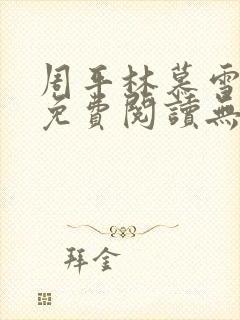 周平林慕雪
免費閱讀無
拜金